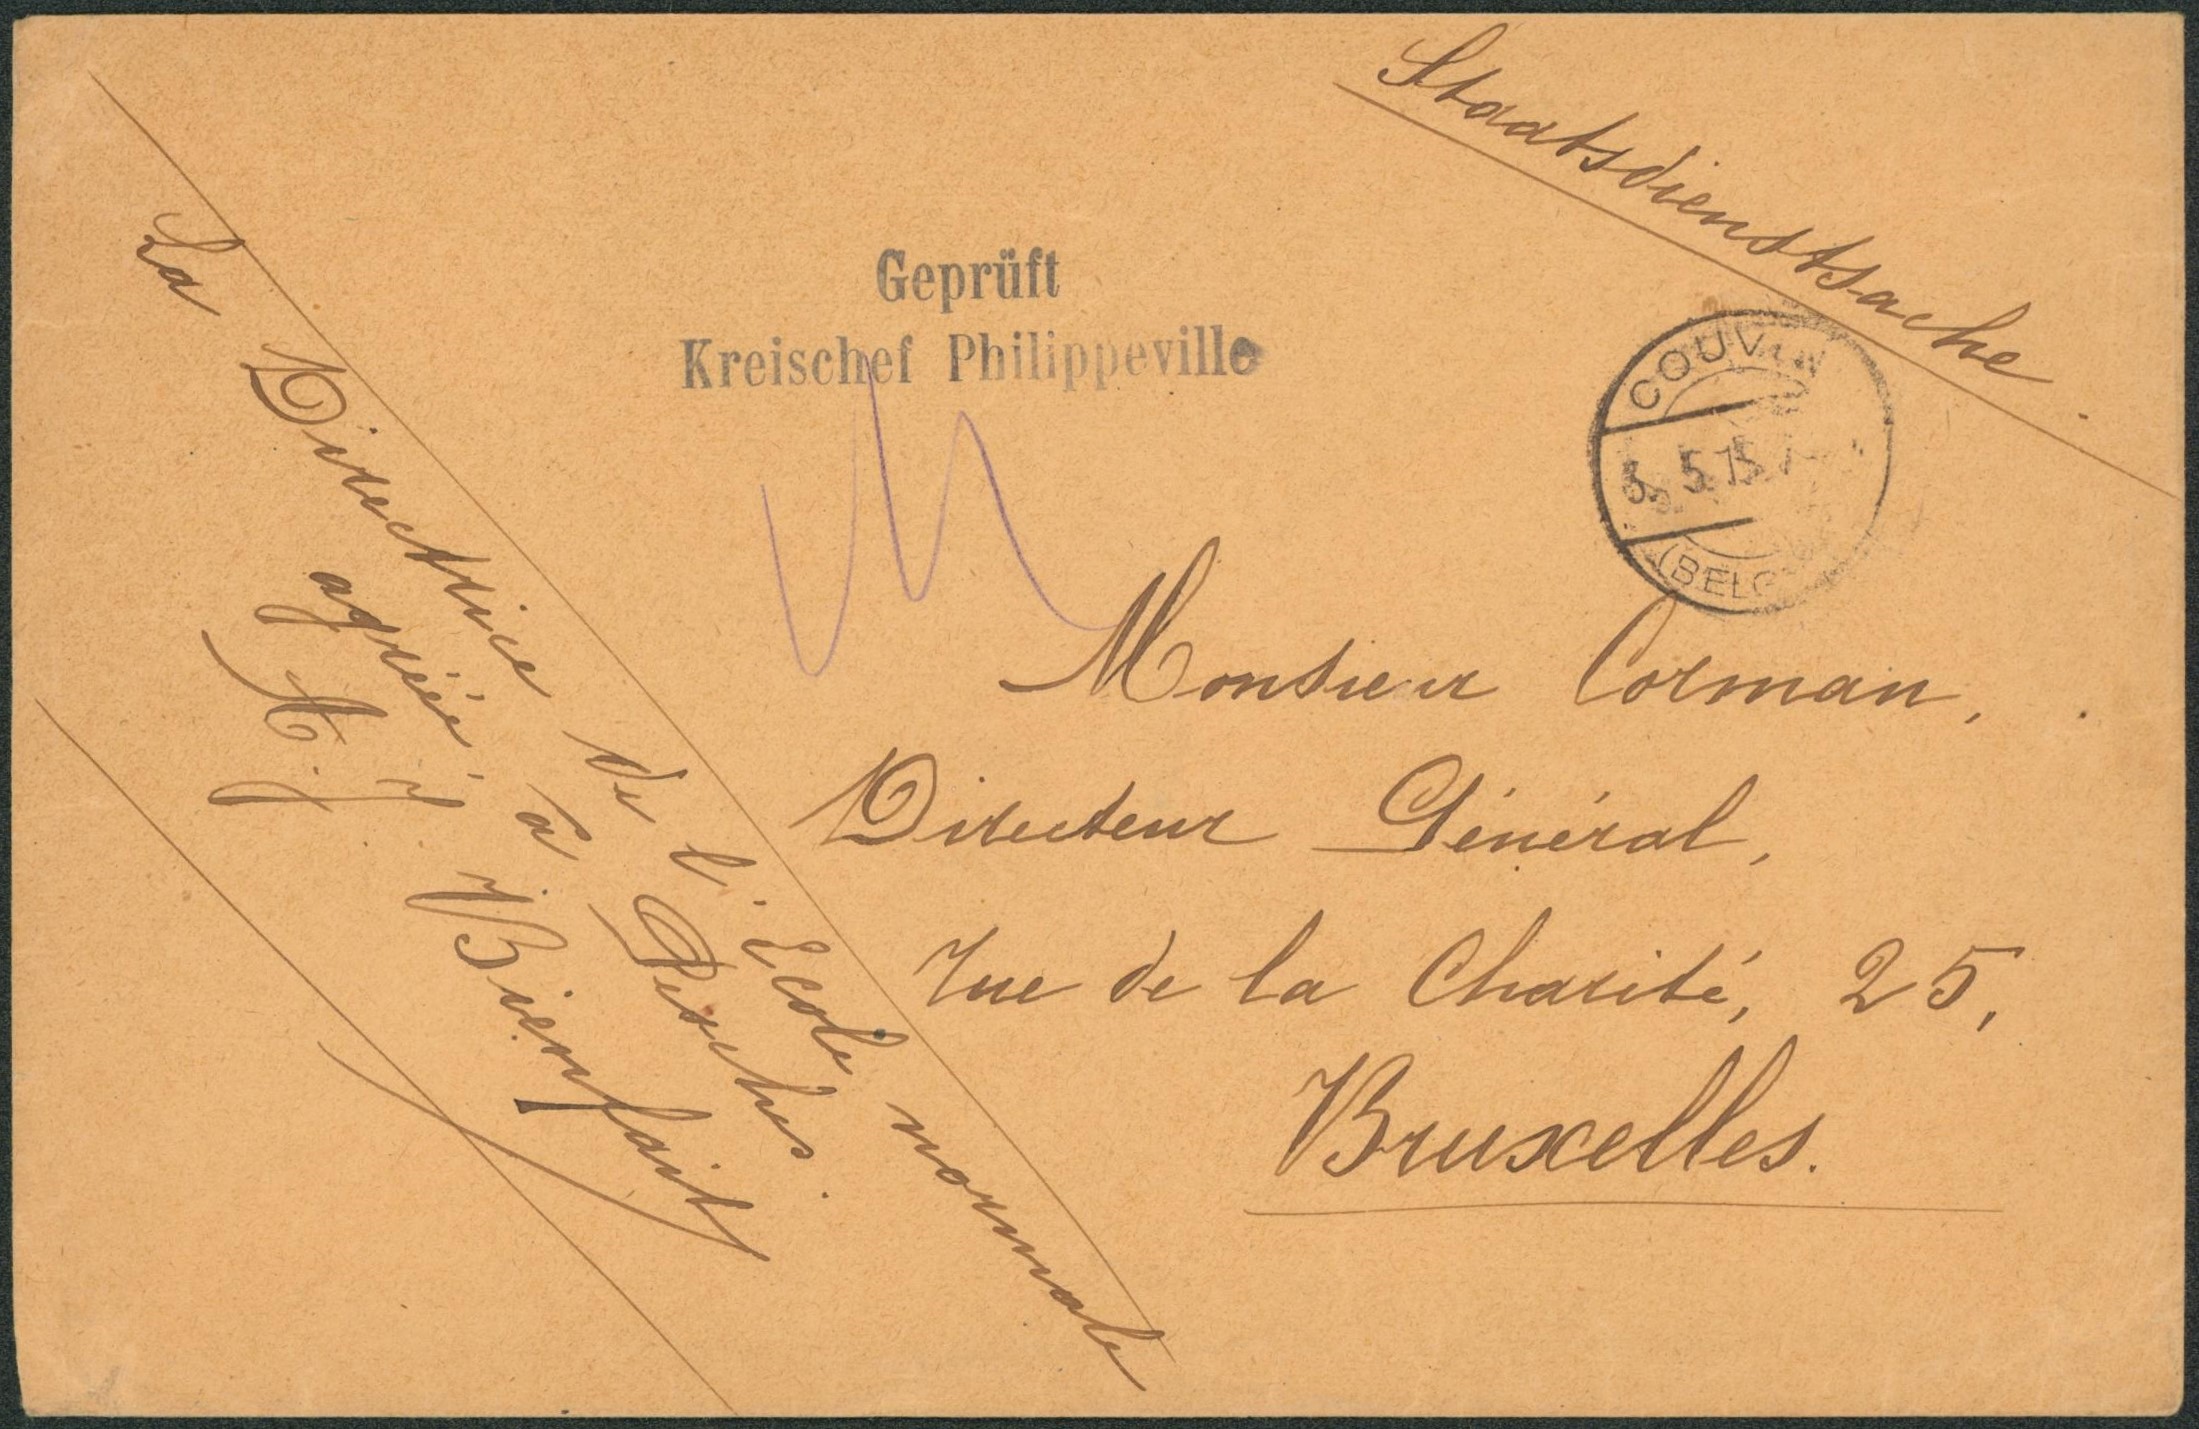 Staatsdienstsache.
Geprüft
Kreischef Philippeville
COUVIN
5.15.
(BELG
Monsieur Corman,
Directeur Général,
rue de la Charité, 25,
Bruxelles.
La Directrice de l'Ecole normale
agréée, à Pesches.
Bienfait